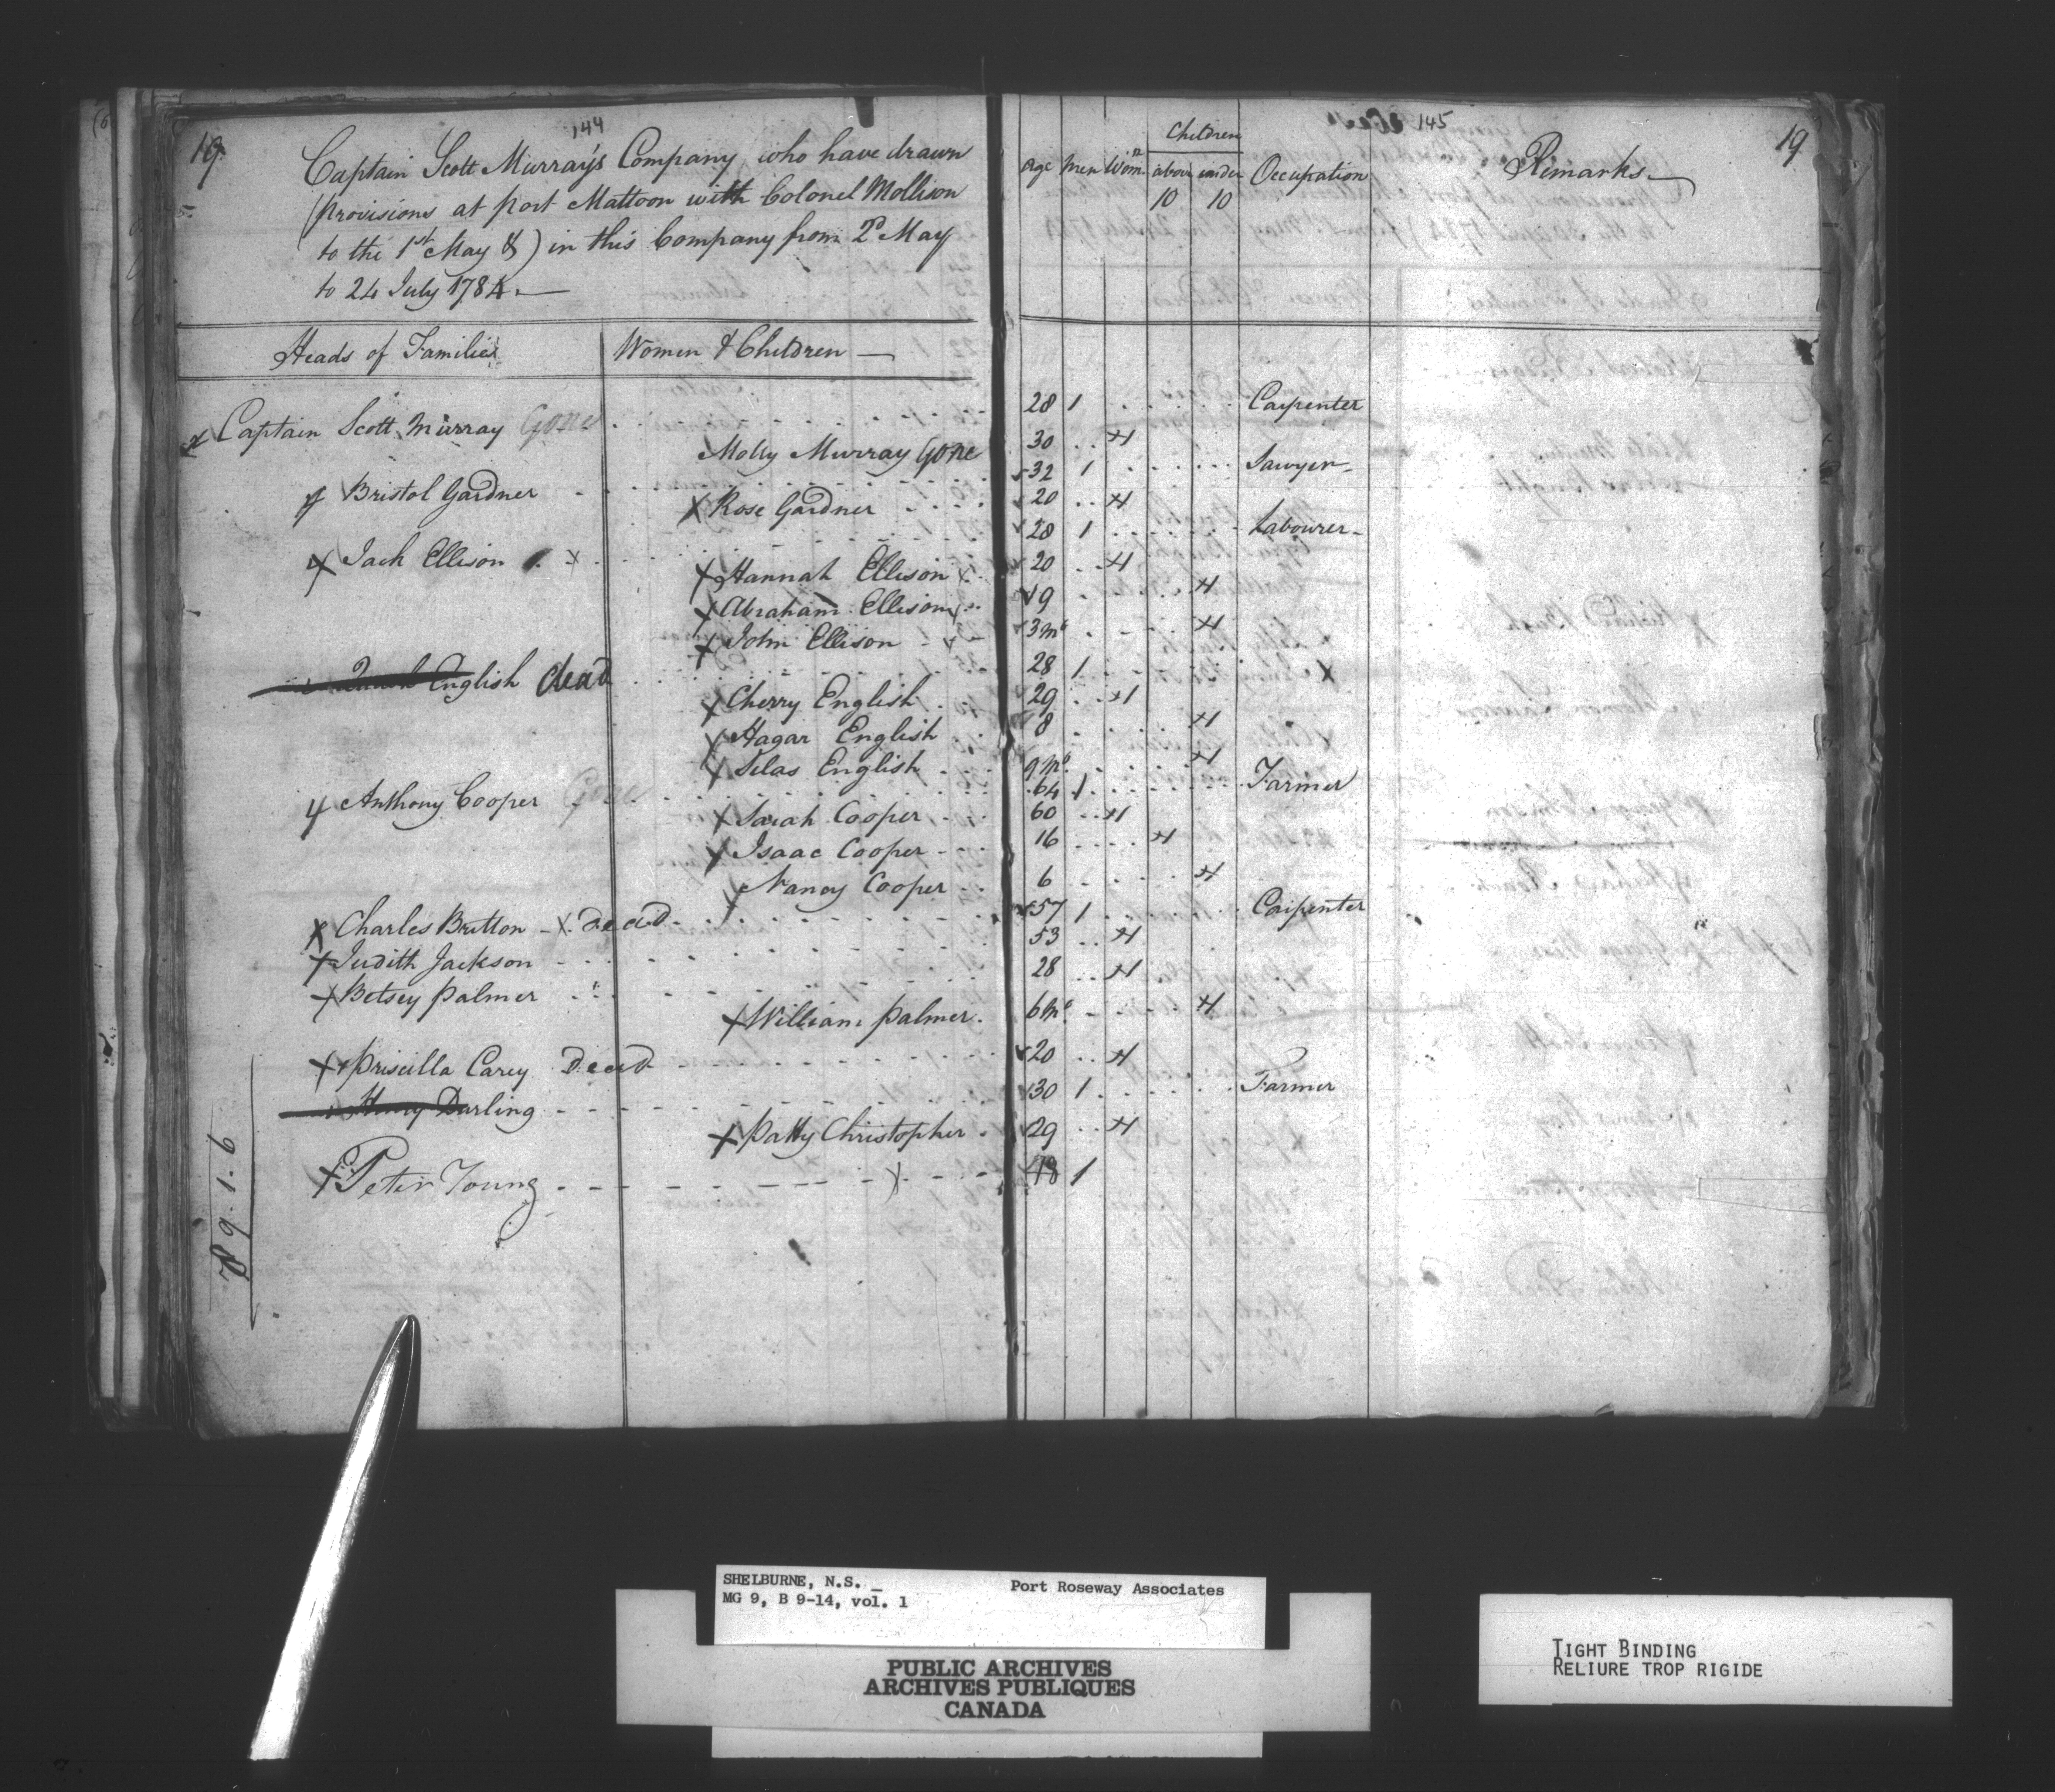 19
144
Captain Scott Murray's Company who have drawn
(provisions at port Mattoon with Colonel Mollison
to the 1st May &) in this Company from 2d May
to 24 July 1784.
Heads of Families
Women & Children
x Captain Scott Murray Gone
Molly Murray Gone
x Bristol Gardner
x Rose Gardner
x Jack Ellison x
x Hannah Ellison x
x Abraham Ellison
x John Ellison
English dead
x Cherry English
x Hagar English
x Silas English
x Anthony Cooper Gone
x Sarah Cooper
x Isaac Cooper
x Nancy Cooper
x Charles Britton x Dead
x Judith Jackson
x Betsey Palmer
x William Palmer
x Priscilla Carey Dead
Henry Darling
x Patty Christopher
x Peter Young x
145
19
Age Men Wom.n Children above 10 under 10 Occupation Remarks
28 1 Carpenter
30 1
32 1 Sawyer
20 1
28 1 Labourer
20 1
9 1
3 Ms 1
28 1
29 1
8 1
9 Ms 1
64 1 Farmer
60 1
16 1
6 1
57 1 Carpenter
53 1
28 1
6 Ms 1
20 1
30 1 Farmer
29 1
48 1
SHELBURNE, N.S. Port Roseway Associates
MG 9, B 9-14, vol. 1
PUBLIC ARCHIVES
ARCHIVES PUBLIQUES
CANADA
TIGHT BINDING
RELIURE TROP RIGIDE